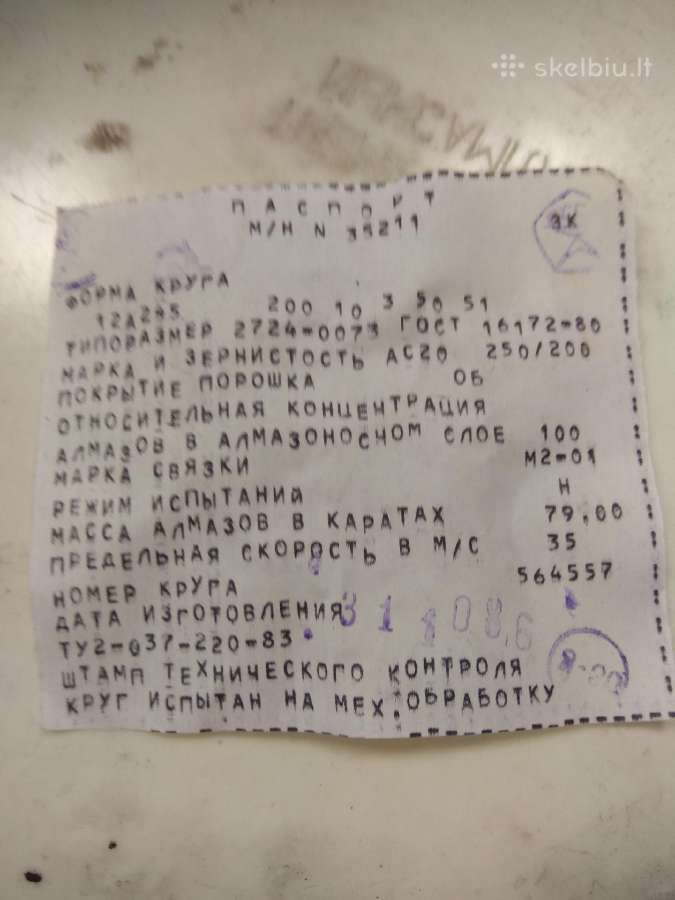 skelbiu.lt
ПАСПОРТ
М/Н N 35211
ЗК
ФОРМА КРУГА
12А245 200 10 3 50 51
ТИПОРАЗМЕР 2724-0073 ГОСТ 16172-80
МАРКА И ЗЕРНИСТОСТЬ АС20 250/200
ПОКРЫТИЕ ПОРОШКА ОБ
ОТНОСИТЕЛЬНАЯ КОНЦЕНТРАЦИЯ
АЛМАЗОВ В АЛМАЗОНОСНОМ СЛОЕ 100
МАРКА СВЯЗКИ М2-01
РЕЖИМ ИСПЫТАНИЙ Н
МАССА АЛМАЗОВ В КАРАТАХ 79,00
ПРЕДЕЛЬНАЯ СКОРОСТЬ В М/С 35
НОМЕР КРУГА 564557
ДАТА ИЗГОТОВЛЕНИЯ
ТУ2-037-220-83
ШТАМП ТЕХНИЧЕСКОГО КОНТРОЛЯ
КРУГ ИСПЫТАН НА МЕХ.ОБРАБОТКУ